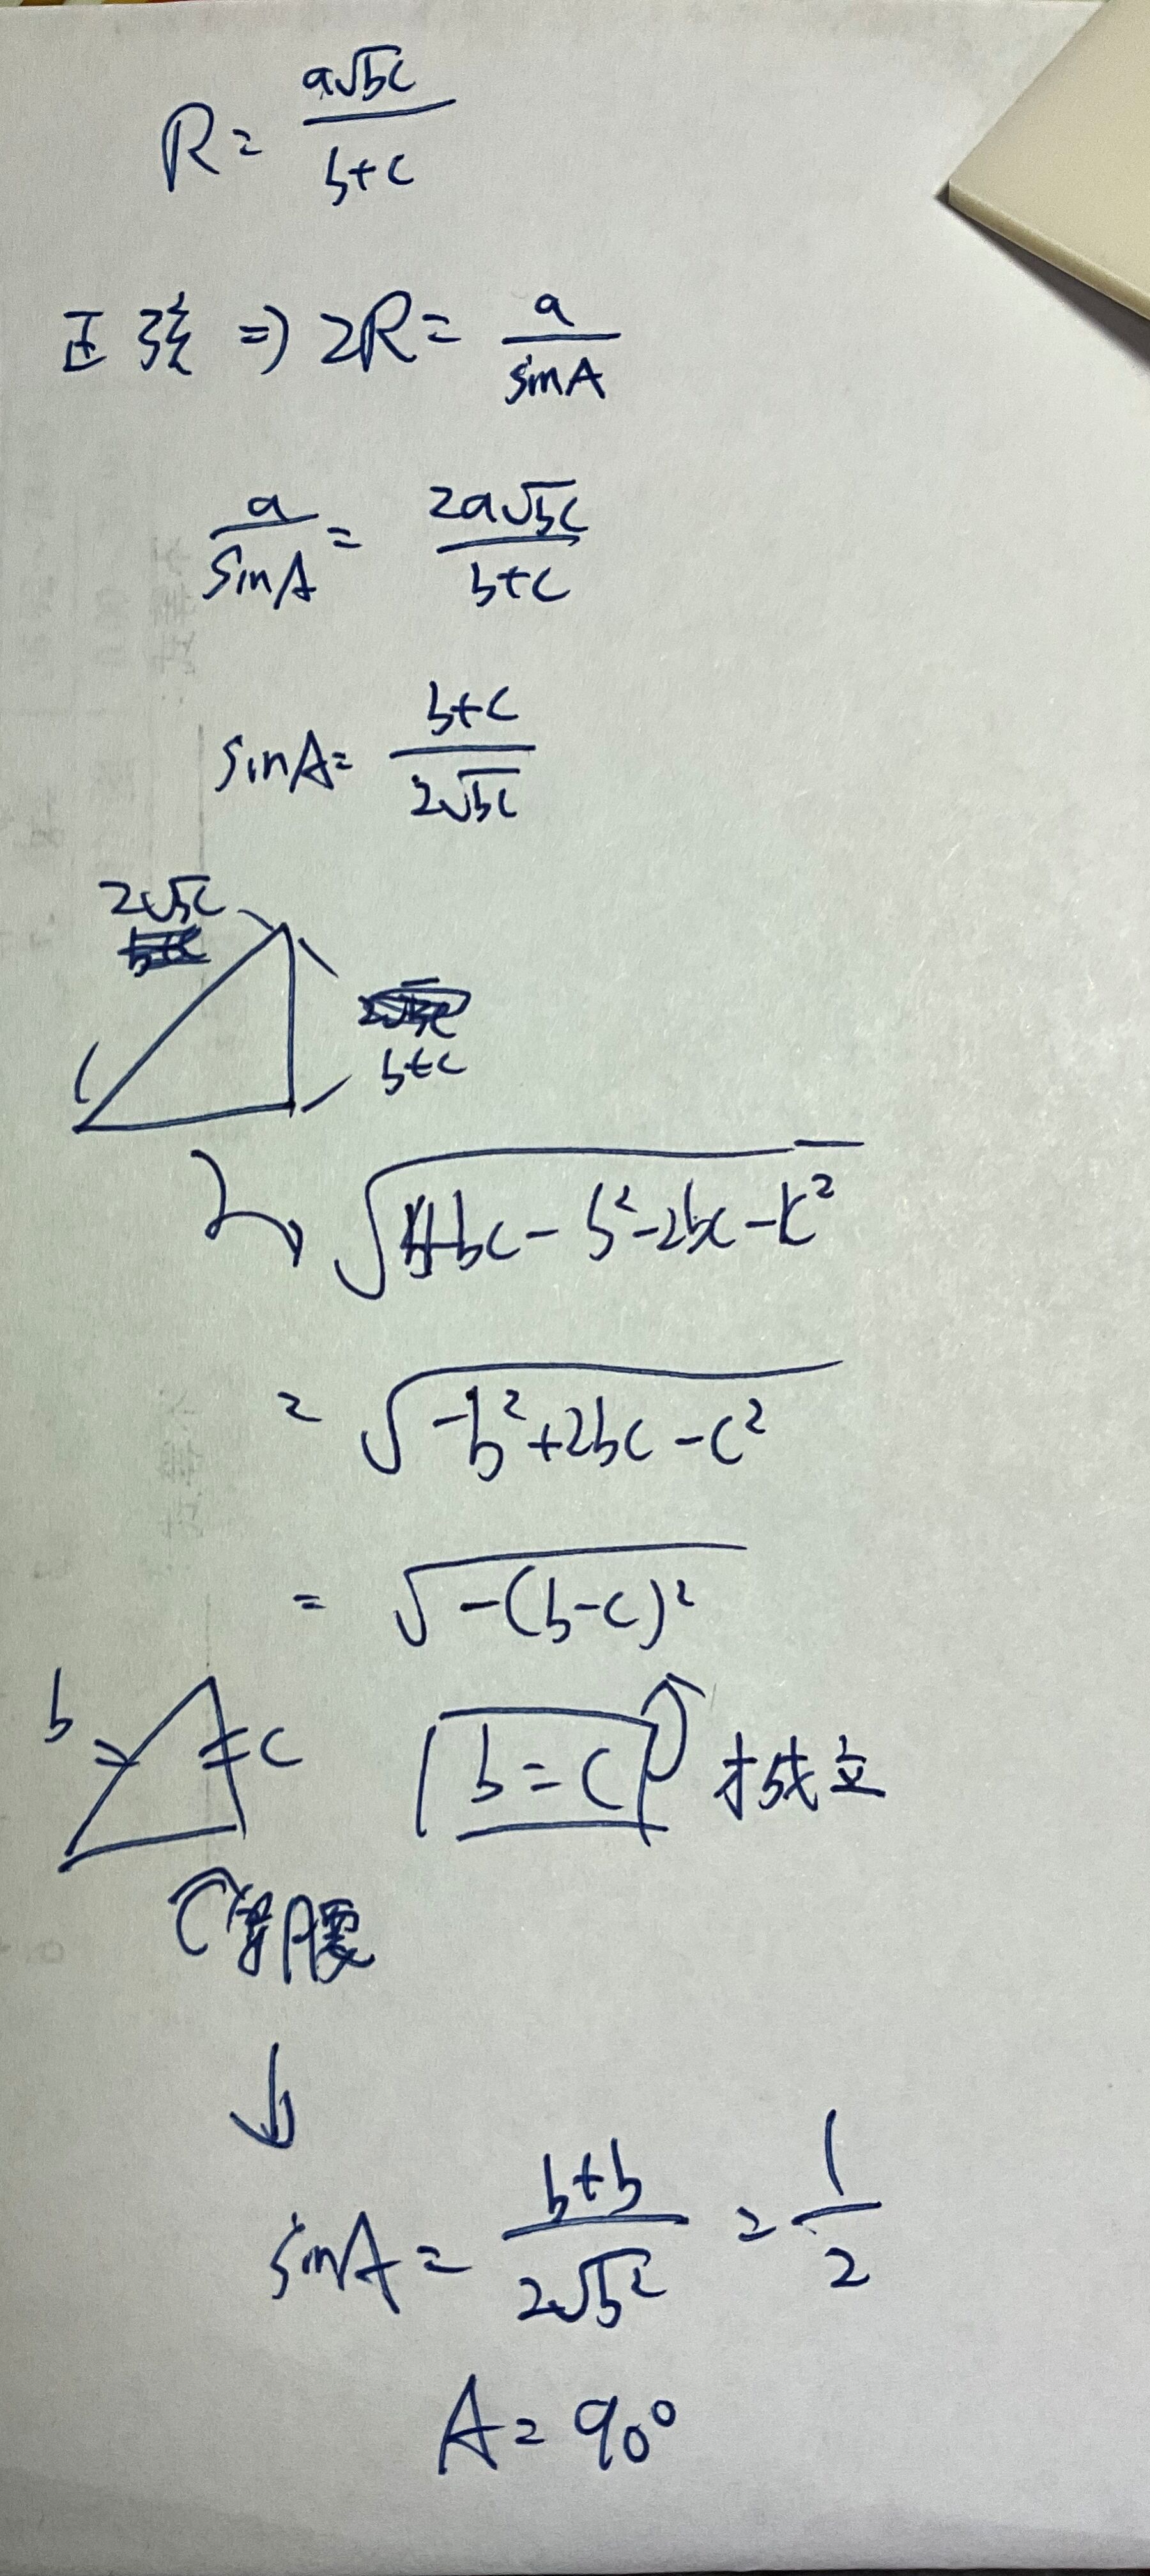 R = a√bc / b+c
正弦 => 2R = a / sinA
a / sinA = 2a√bc / b+c
sinA = b+c / 2√bc
2√bc
b+c
√4bc - b² - 2bc - c²
= √-b² + 2bc - c²
= √-(b-c)²
b
c
b = c 才成立
等腰
↓
sinA = b+b / 2√b² = 1 / 2
A = 90°